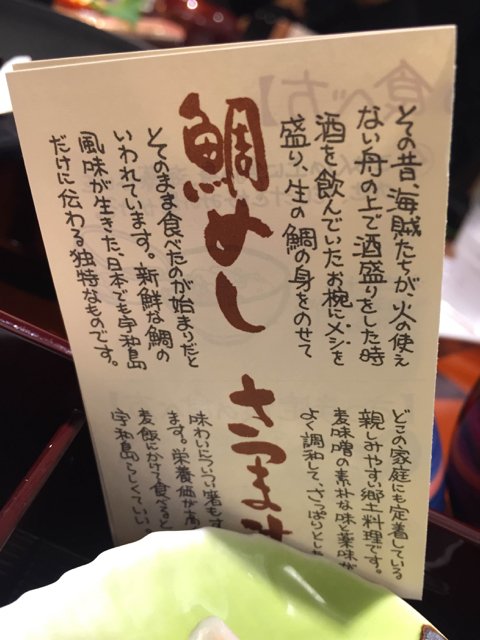 その昔、海賊たちが、火の使え
ない舟の上で酒盛りをした時
酒を飲んでいたお椀にメシを
盛り、生の鯛の身をのせて
鯛めし
そのまま食べたのが始まりだと
いわれています。新鮮な鯛の
風味が生きた、日本でも宇和島
だけに伝わる独特なものです。
どこの家庭にも定着している
親しみやすい郷土料理です。
麦味噌の素朴な味と薬味が
よく調和して、さっぱりとした
さつま
味わいについつい箸もす
ます。栄養価が高
麦飯にかけて食べると
宇和島らしくていい。
食べ方】